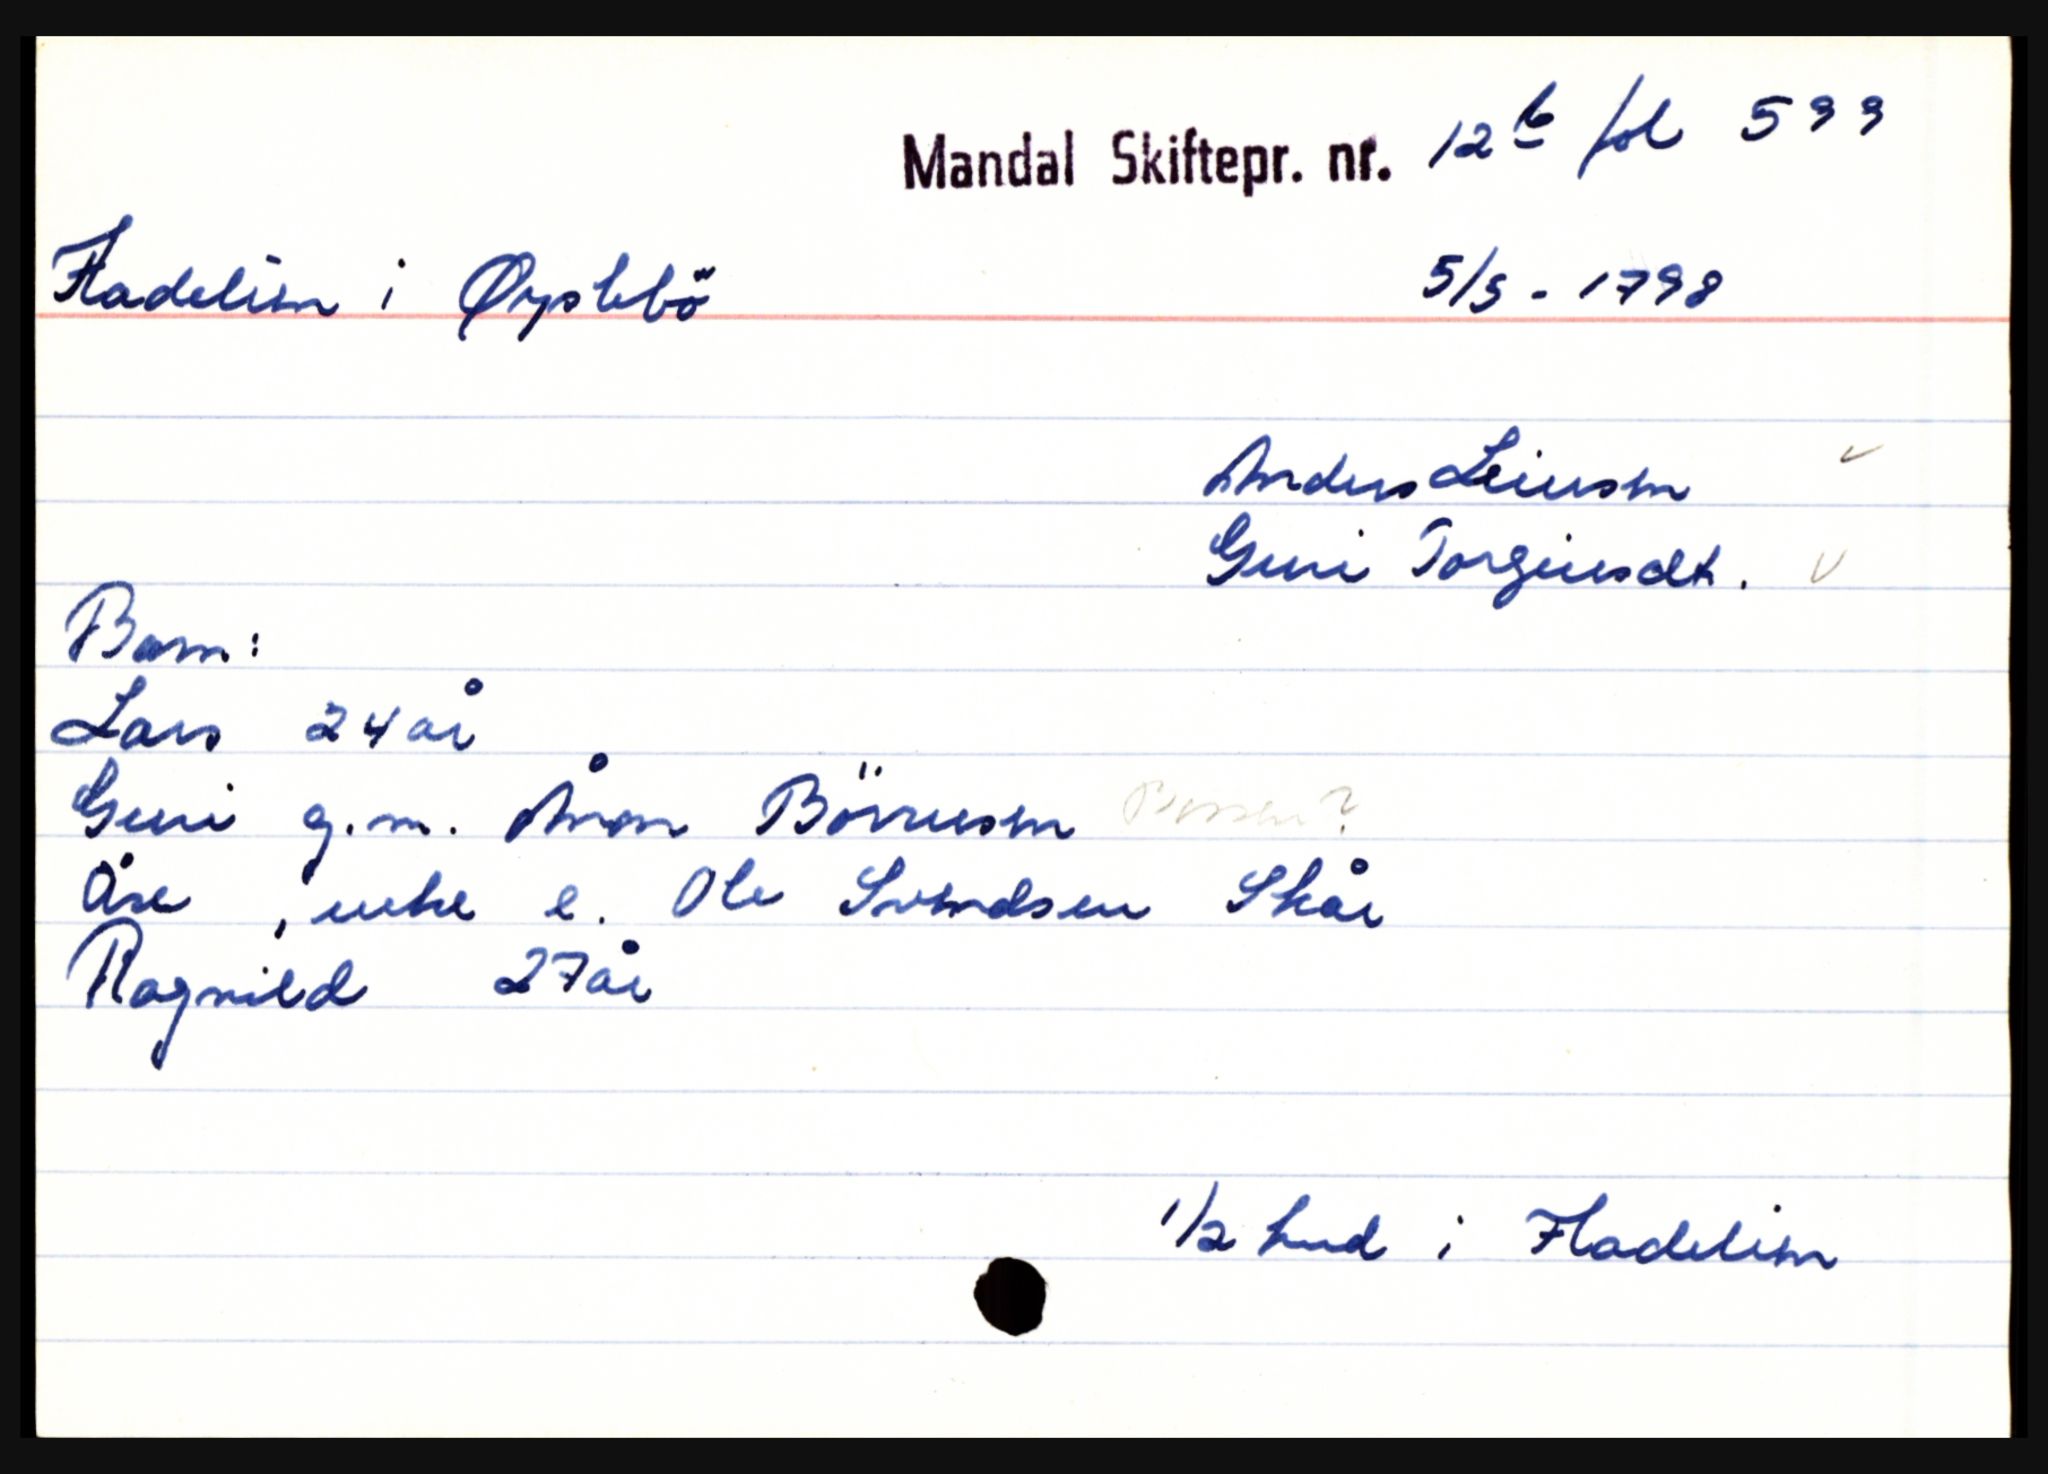 Mandal Skiftepr. nr. 12 b fol 599
Fladelien i Øyslebö 5/5 - 1798
Anders Leiersen
Guri Torgiersdt.
Barn:
Lars 24 år
Guri g.m. Ånon Börresen
Åse , enke e. Ole Svendsen Skår
Ragnild 27 år
1/2 hud i Fladelien